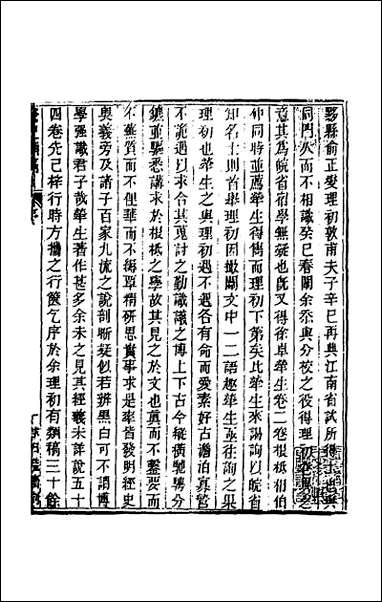 黟縣俞正燮理初敦甫夫子辛巳再典江南省試所得士也與
同門久而不相識癸巳春闈余忝與分校之役得理初卷
意其為皖省宿學無疑也旣又得徐卓犖生卷二卷根柢相伯
仲同時並薦犖生得售而理初下第矣比犖生來謁詢以皖省
知名士則首舉理初因撤闈文中一二語趣犖生亟往詢之果
理初也犖生之與理初遇不遇各有命而愛素好古澹泊眞嘗
不詭遇以求合其蒐討之勤識議之博上下古今縱橫馳騁分
鑣並驅悉講求於根柢之學故其見之於文也眞而不鑿要而
不蕪質而不俚華而不縟覃精研思實事求是率皆發明經史
奧義旁及諸子百家九流之說剖晰疑似若辨黑白可不謂博
學强識君子哉犖生著作甚多余未之見其經義未詳說五十
四卷先已梓行時方攜之行篋乞序於余理初有類稿三十餘